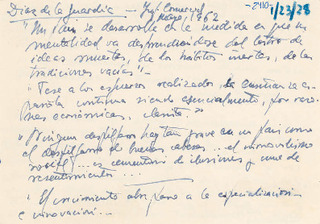 Diaz de la Guardia - Inf. Comercial
Mayo, 1962
2410
1/23/28
"Un País se desarrolla en la medida en que su
mentalidad va desprendiéndose del lastre de
ideas muertas, de los hábitos inertes, de las
tradiciones vacías".
"Pese a los esfuerzos realizados, la enseñanza es-
pañola continua siendo esencialmente, por razo-
nes económicas, clasista"
"Ningun despilfarro hay tan grave en un país como
el despilfarro de buenas cabezas... el inmovilismo
social... es cementerio de ilusiones y cuna de
resentimientos...
"El crecimiento abre paso a la especialización
e innovación...